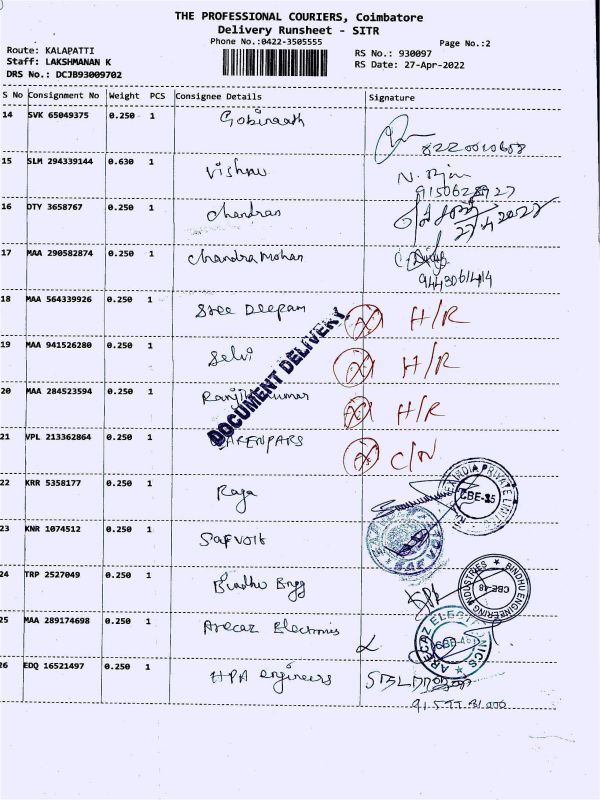 THE PROFESSIONAL COURIERS, Coimbatore
Delivery Runsheet - SITR
Phone No.:0422-3505555
Page No.:2
Route: KALAPATTI
Staff: LAKSHMANAN K
DRS No.: DCJB93009702
RS No.: 930097
RS Date: 27-Apr-2022
S No Consignment No Weight PCS Consignee Details Signature
14 SVK 65049375 0.250 1 Gobinaath
8220010658
15 SLM 294339144 0.630 1 Vishnu
N.
9150628927
16 DTY 3658767 0.250 1 Chandran
27.4.2022
17 MAA 290582874 0.250 1 Chandra Mohan
9443061414
18 MAA 564339926 0.250 1 Sree Deepam H/R
19 MAA 941526280 0.250 1 Selvi H/R
DOCUMENT DELIVERY
20 MAA 284523594 0.250 1 H/R
21 VPL 213362864 0.250 1 C/N
22 KRR 5358177 0.250 1 Raja
INDIA PRIVATE
CBE-35
23 KNR 1074512 0.250 1 Safvolt
SAFVOLT
24 TRP 2527049 0.250 1 Bindhu Engg
BINDHU ENGINEERING INDUSTRIES
CBE-48
25 MAA 289174698 0.250 1 Arecaz Electronics
ARECAZ ELECTRONICS
26 EDQ 16521497 0.250 1 HPA engineers